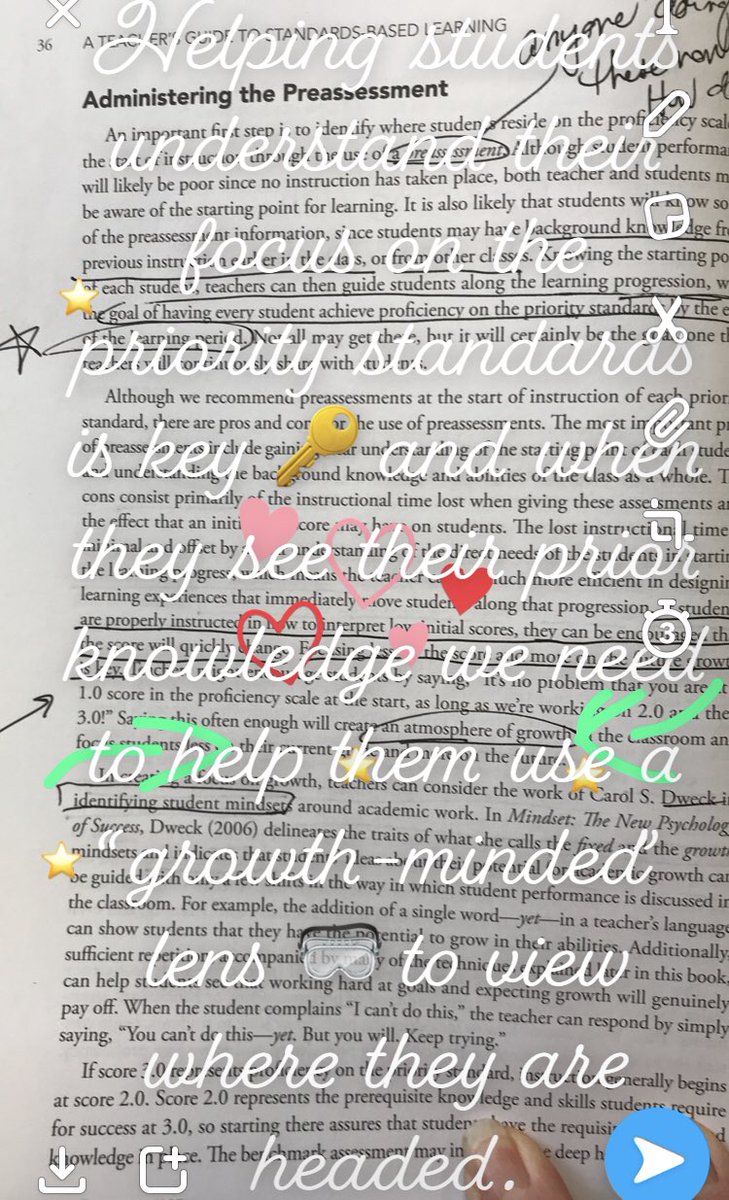 Helping students
understand their
focus on the
priority standards
is key 🔑 and when
they see their prior
knowledge we need
to help them use a
"growth-minded"
lens 🥽 to view
where they are
headed.
3
36 A TEACHER'S GUIDE TO STANDARDS-BASED LEARNING
anyone doing
these now
Administering the Preassessment
An important first step is to identify where students reside on the proficiency scale
the start of instruction through the use of a preassessment. Although student performa
will likely be poor since no instruction has taken place, both teacher and students m
be aware of the starting point for learning. It is also likely that students will know so
of the preassessment information, since students may have background knowledge fro
previous instruction earlier in the class, or from other classes. Knowing the starting po
of each student, teachers can then guide students along the learning progression, w
the goal of having every student achieve proficiency on the priority standard by the e
of the learning period. Not all may get there, but it will certainly be the goal one th
teachers will continuously share with students.
Although we recommend preassessments at the start of instruction of each prior
standard, there are pros and cons for the use of preassessments. The most important pr
of preassessments include gaining clear understanding of the starting point of each stude
and understanding the background knowledge and abilities of the class as a whole. T
cons consist primarily of the instructional time lost when giving these assessments a
the effect that an initial score may have on students. The lost instructional time
minimal and offset by understanding of the direct needs of the students in startin
the learning progression, much more efficient in designin
learning experiences that immediately move students along that progression. If studen
are properly instructed in how to interpret low initial scores, they can be encouraged th
the score will quickly change. Focusing less on the score and more on the future growt
is key. by saying, "It's no problem that you are at
1.0 score in the proficiency scale at the start, as long as we're working on 2.0 and the
3.0!" Saying this often enough will create an atmosphere of growth in the classroom an
focus students less on their current and more on the future.
In creating a focus on growth, teachers can consider the work of Carol S. Dweck i
identifying student mindsets around academic work. In Mindset: The New Psycholog
of Success, Dweck (2006) delineates the traits of what she calls the fixed and the growt
mindsets and indicates that students' ideas about their potential for academic growth can
be guided with only a few shifts in the way in which student performance is discussed in
the classroom. For example, the addition of a single word—yet—in a teacher's language
can show students that they have the potential to grow in their abilities. Additionally,
sufficient repetition accompanied by many of the techniques explained later in this book,
can help students see that working hard at goals and expecting growth will genuinely
pay off. When the student complains "I can't do this," the teacher can respond by simply
saying, "You can't do this—yet. But you will. Keep trying."
If score 3.0 represents proficiency on the priority standard, instruction generally begins
at score 2.0. Score 2.0 represents the prerequisite knowledge and skills students require
for success at 3.0, so starting there assures that students have the requisi
knowledge in place. The benchmark assessment may in deep